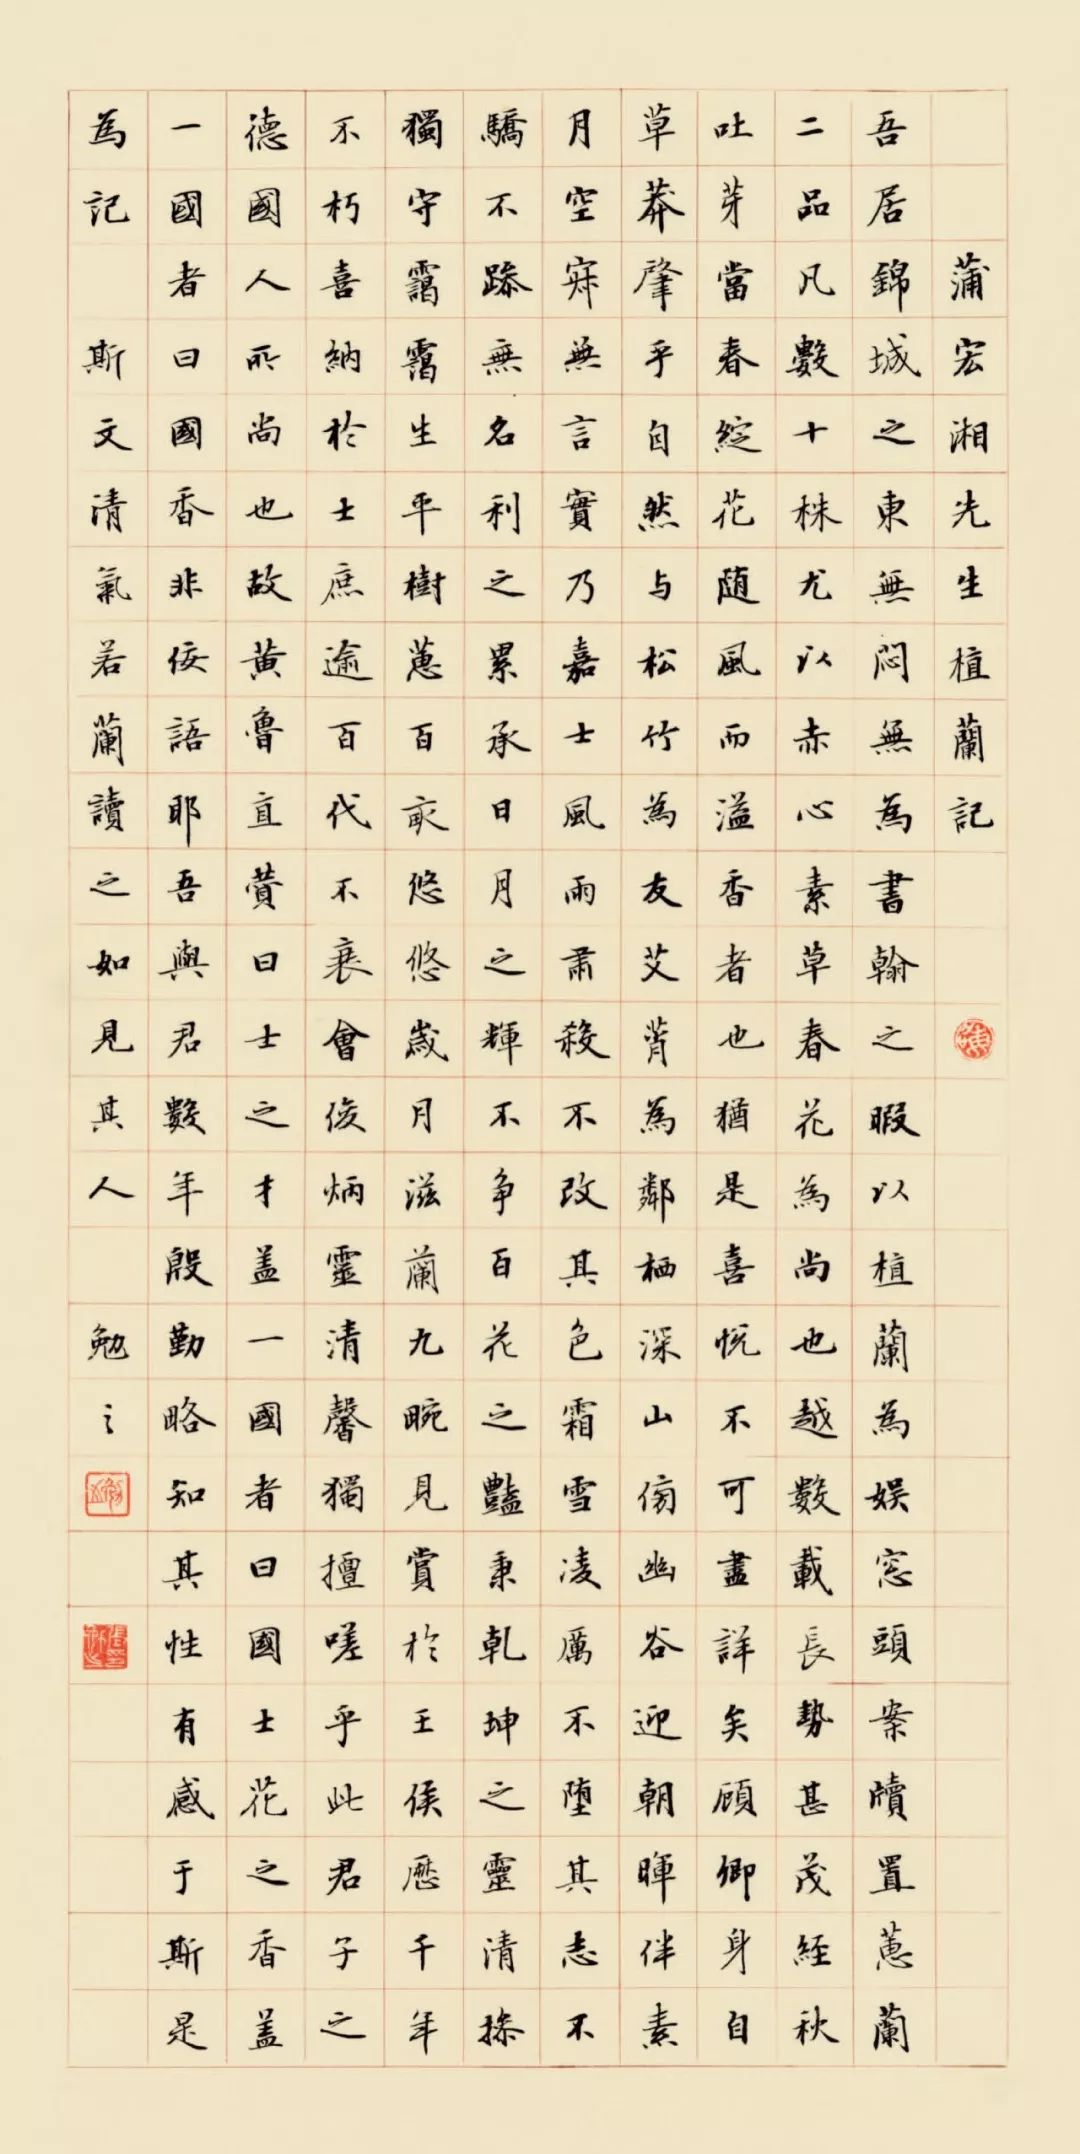 蒲宏湘先生植蘭記
吾居錦城之東無悶無為書翰之暇以植蘭為娱窓頭案牘置蕙蘭
二品凡數十株尤以赤心素草春花為尚也越數載長勢甚茂經秋
吐芽當春綻花随風而溢香者也猶是喜悦不可盡詳矣顧卿身自
草莽肇乎自然与松竹為友艾蒿為鄰栖深山傍幽谷迎朝暉伴素
月空寂無言實乃嘉士風雨肅殺不改其色霜雪凌厲不堕其志不
驕不躁無名利之累承日月之輝不争百花之豔秉乾坤之靈清操
獨守靄靄生平樹蕙百畝悠悠歲月滋蘭九畹見賞於王侯歷千年
不朽喜納於士庶逾百代不衰會後炳靈清馨獨擅嗟乎此君子之
德國人所尚也故黄魯直贊曰士之才盖一國者曰國士花之香盖
一國者曰國香非佞語耶吾與君數年殷勤略知其性有感于斯是
為記 斯文清氣若蘭讀之如見其人 勉之